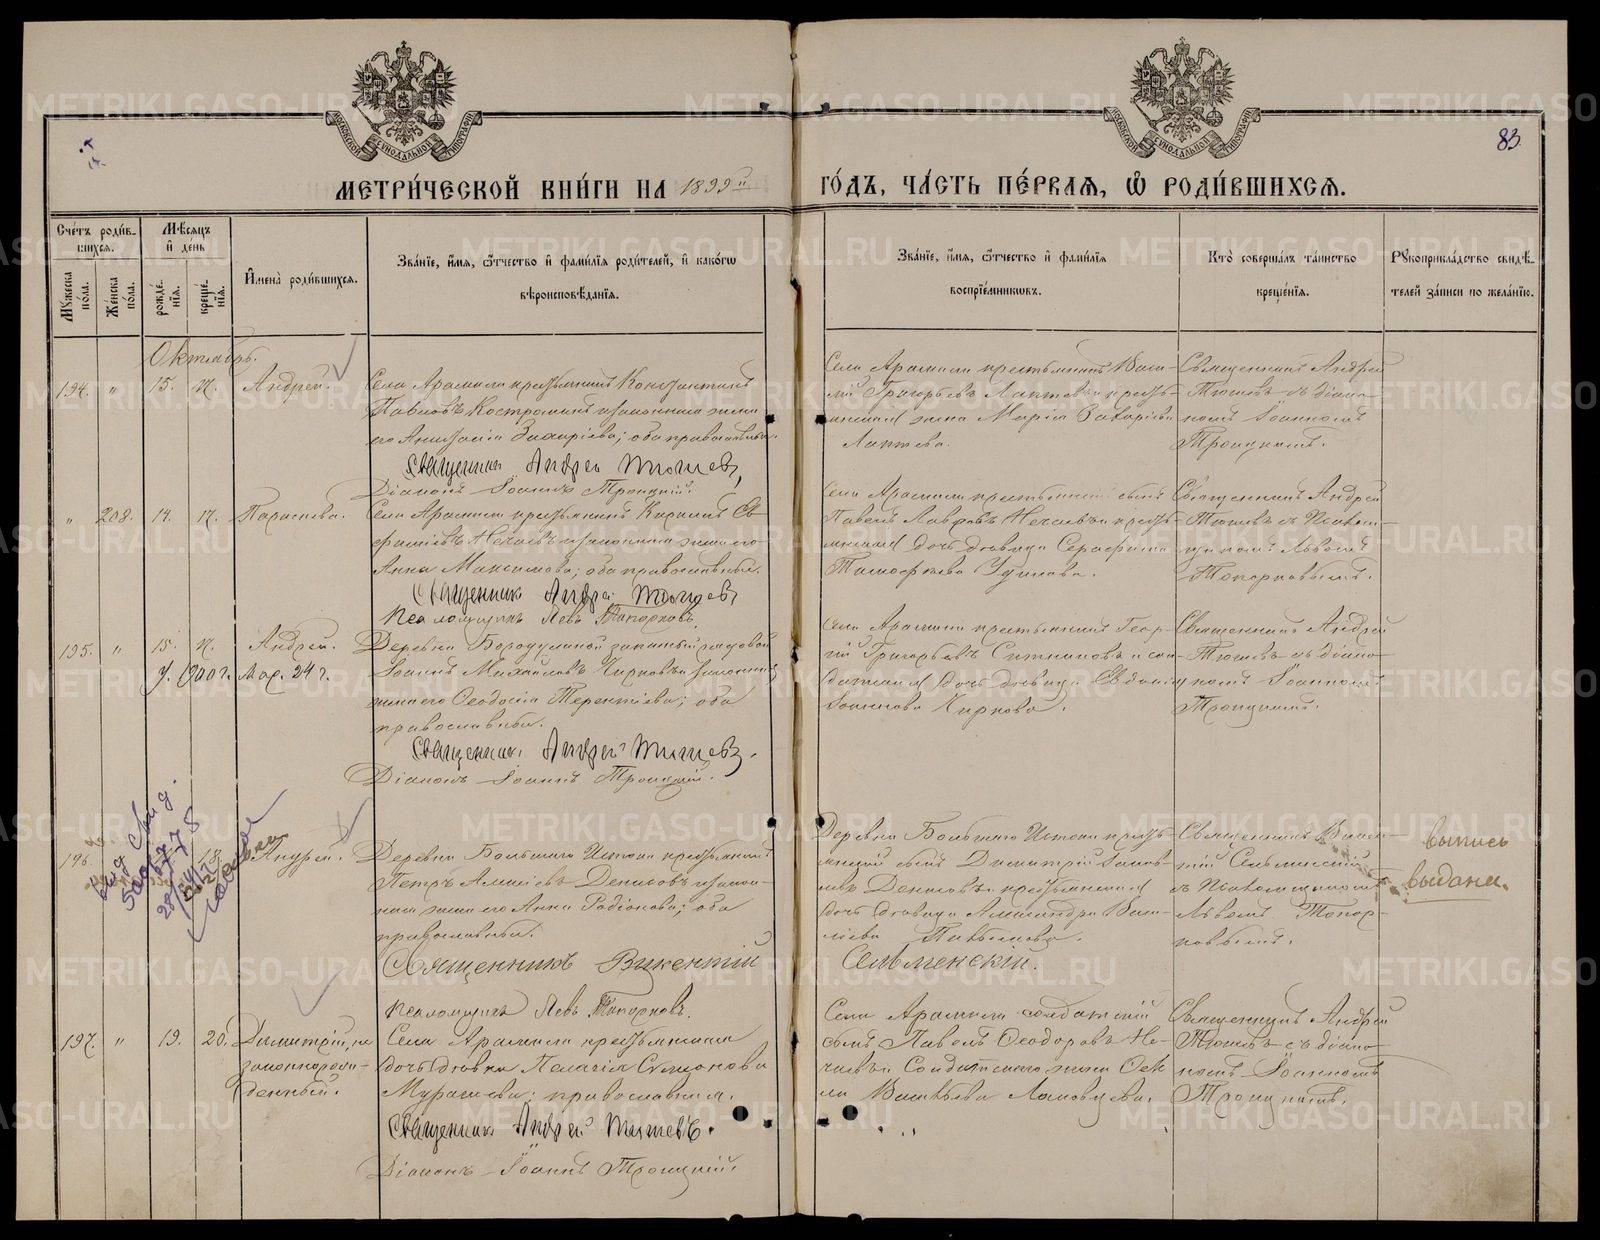 МОСКОВСКОЙ СѴНОДАЛЬНОЙ ТИПОГРАФІИ
МОСКОВСКОЙ СѴНОДАЛЬНОЙ ТИПОГРАФІИ
83
МЕТРИ́ЧЕСКОЙ КНИ́ГИ НА 1899й
ГО́ДЪ, ЧА́СТЬ ПЕ́РВАѦ, Ѡ҆ РОДИ́ВШИХСѦ.
Сче́тъ роди́в-
шихсѧ.
Мꙋ́жеска по́ла.
Же́нска по́ла.
Мѣ́сѧцъ и҆ день
рожде́-
нїѧ.
креще́-
нїѧ.
И҆мена̀ роди́вшихсѧ.
Зва́нїе, и҆́мѧ, ѻ҆́тчество и҆ фами́лїѧ роди́телей, и҆ како́гѡ
вѣроисповѣ́данїѧ.
Зва́нїе, и҆́мѧ, ѻ҆́тчество и҆ фами́лїѧ
воспрїе́мникѡвъ.
Кто̀ соверша́лъ та́инство
креще́нїѧ.
Рꙋкоприкла́дство свидѣ́-
телей за́писи по жела́нїю.
Октябрь.
194. " 15. 17. Андрей.
Села Арамили крестьянинъ Константинъ
Павловъ Костроминъ и законная жена
его Анисія Захаріева; оба православные.
Священникъ Андрей Тюшевъ,
Діаконъ Іоаннъ Троицкій.
Села Арамили крестьянинъ Васи-
лій Григорьевъ Лаптевъ и кресть-
янская жена Марія Захаріева
Лаптева.
Священникъ Андрей
Тюшевъ съ діако-
номъ Іоанномъ
Троицкимъ.
" 208. 14. 17. Параскева.
Села Арамили крестьянинъ Кириллъ Ев-
фиміевъ Нечаевъ и законная жена его
Анна Максимова; оба православные.
Священникъ Андрей Тюшевъ
Псаломщикъ Левъ Топорковъ.
Села Арамили крестьянскій сынъ
Павелъ Лавровъ Нечаевъ и кресть-
янская дочь девица Серафима
Тимофеева Удилова.
Священникъ Андрей
Тюшевъ съ Псалом-
щикомъ Львомъ
Топорковымъ.
195. " 15. 17. Андрей.
у. 900 г. Мар. 24 г.
Деревни Бородулиной запасный рядовой
Іоаннъ Михайловъ Кирковъ и законная
жена его Ѳеодосія Терентіева; оба
православные.
Священникъ Андрей Тюшевъ.
Діаконъ Іоаннъ Троицкій.
Села Арамили крестьянинъ Геор-
гій Григорьевъ Ситниковъ и сол-
датская дочь девица Евдокія
Іоаннова Киркова.
Священникъ Андрей
Тюшевъ съ діако-
номъ Іоанномъ
Троицкимъ.
196. 18. Андрей.
Деревни Большаго Истока крестьянинъ
Петръ Алексіевъ Денисовъ и закон-
ная жена его Анна Родіонова; оба
православные.
Священникъ Викентій
Псаломщикъ Левъ Топорковъ.
Деревни Большаго Истока кресть-
янскій сынъ Димитрій Іаков-
левъ Денисовъ и крестьянская
дочь девица Александра Васи-
ліева
Сельменскій.
Священникъ Викен-
тій Сельменскій
съ Псаломщикомъ
Львомъ Топор-
ковымъ.
выпись
выдана.
197. " 19. 20. Димитрій, не
законнорож-
денный.
Села Арамили крестьянская
дочь девка Пелагія Симонова
Мурашева; православная.
Священникъ Андрей Тюшевъ.
Діаконъ Іоаннъ Троицкій.
Села Арамили солдатскій
сынъ Павелъ Ѳеодоровъ Не-
чаевъ и Солдатская жена Ѳек
ла Васильева Ломовцева.
Священникъ Андрей
Тюшевъ съ діако-
номъ Іоанномъ
Троицкимъ.
METRIKI.GASO-URAL.RU